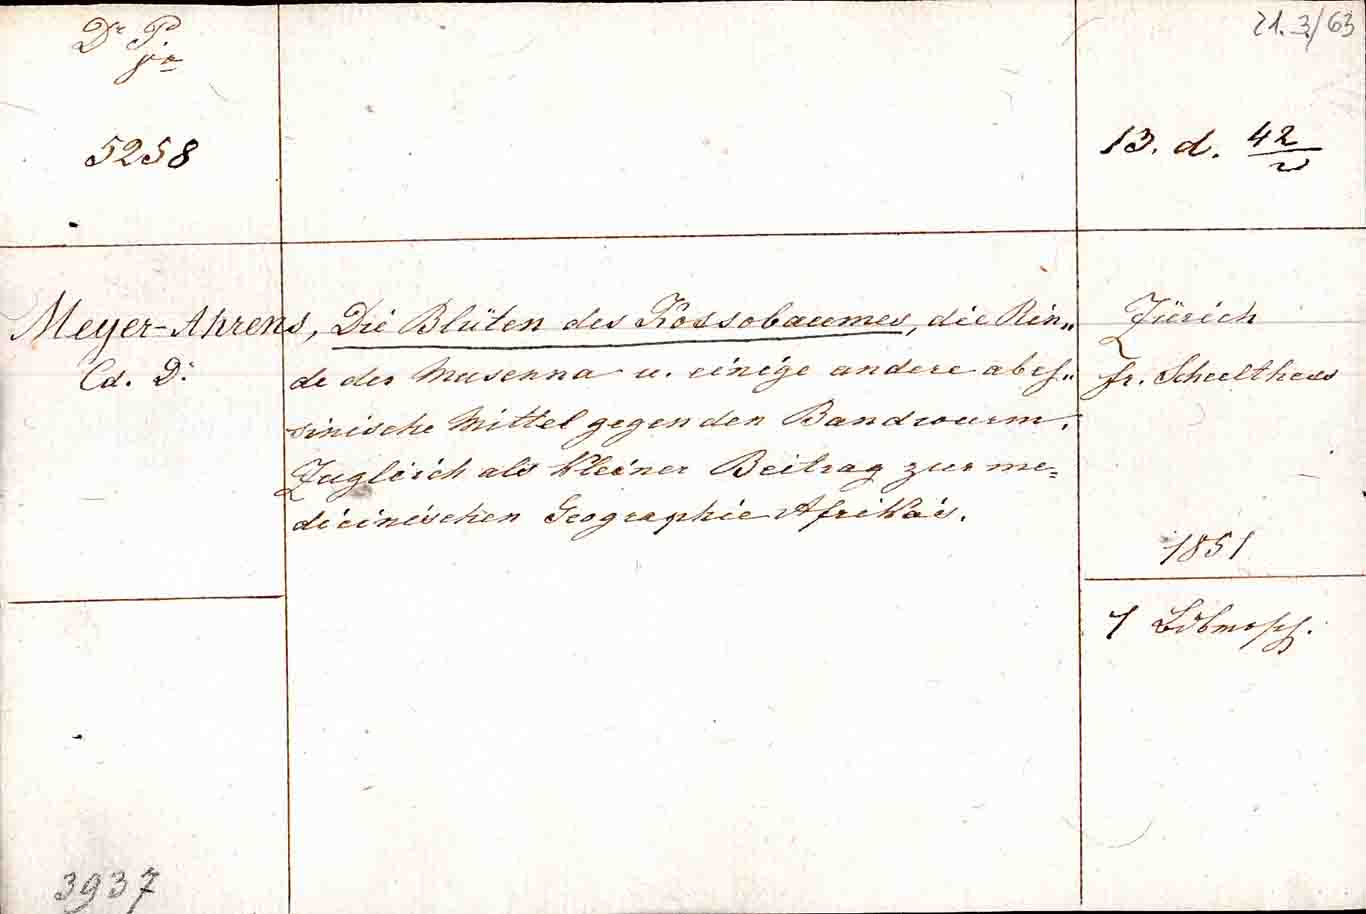 Dr P
21. 3./63
5258
13. d. 42
Meyer-Ahrens, Die Blüten des Kossobaumes, die Rin„
Cd. Dr
de der Musenna u. einige andere abes„
sinische Mittel gegen den Bandwurm.
Zugleich als kleiner Beitrag zur me=
dicinischen Geographie Afrika's.
Zürich
fr. Schulthess
1851
1
3937